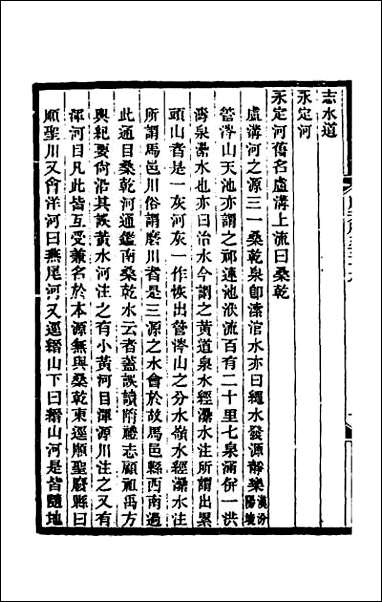 志水道
永定河
永定河舊名盧溝上流曰桑乾
盧溝河之源三一桑乾泉卽漯涫水亦曰纙水發源靜樂漢汾陽境
管涔山天池亦謂之祁連池洑流百有二十里七泉滿併一洪
濤泉灅水也亦曰治水今謂之黃道泉水經灅水注所謂出累
頭山者是一灰河灰一作恢出管涔山之分水嶺水經灅水注
所謂馬邑川俗謂磨川者是三源之水會於故馬邑縣西南過
此通目桑乾河通鑑南桑乾水云者蓋誤讀隋禮志顧祖禹方
輿紀要尙沿其誤黃水河注之有小黃河目渾源川注之又有
渾河目凡此皆互受兼名於本源無與桑乾東逕順聖廢縣曰
順聖川又會洋河曰燕尾河又逕䃳山下曰䃳山河是皆隨地